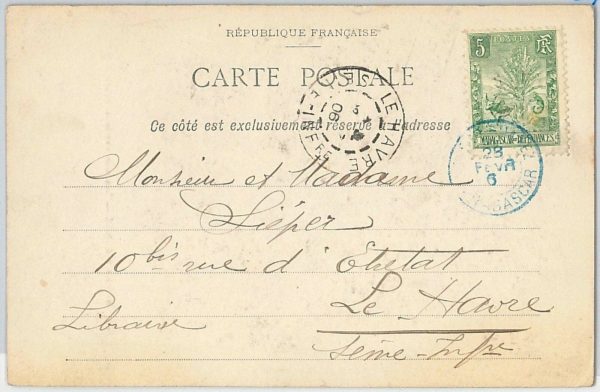 RÉPUBLIQUE FRANÇAISE
CARTE POSTALE
Ce côté est exclusivement réservé à l'adresse
5 POSTES RF
MADAGASCAR ET DÉPENDANCES
LE HAVRE
28
FEVR
6
MADAGASCAR
Monsieur et Madame
Liéper
10 bis rue d'Etretat
Le Havre
Libraire
Seine-Infre